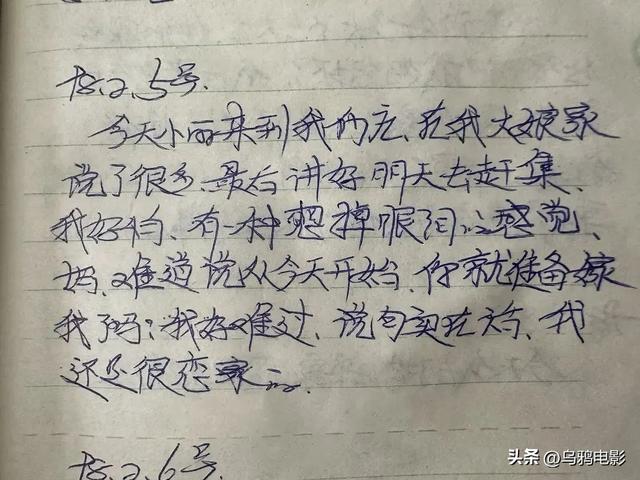 78.2.5号.
今天小丽来到我们庄、在我大娘家
说了很多、最后讲好明天去赶集、
我好怕、有一种想掉眼泪的感觉、
妈、难道说从今天开始、你就准备嫁
我了吗?我好难过、说句实在话、我
还是很恋家的.
78.2.6号.
头条 @乌鸦电影